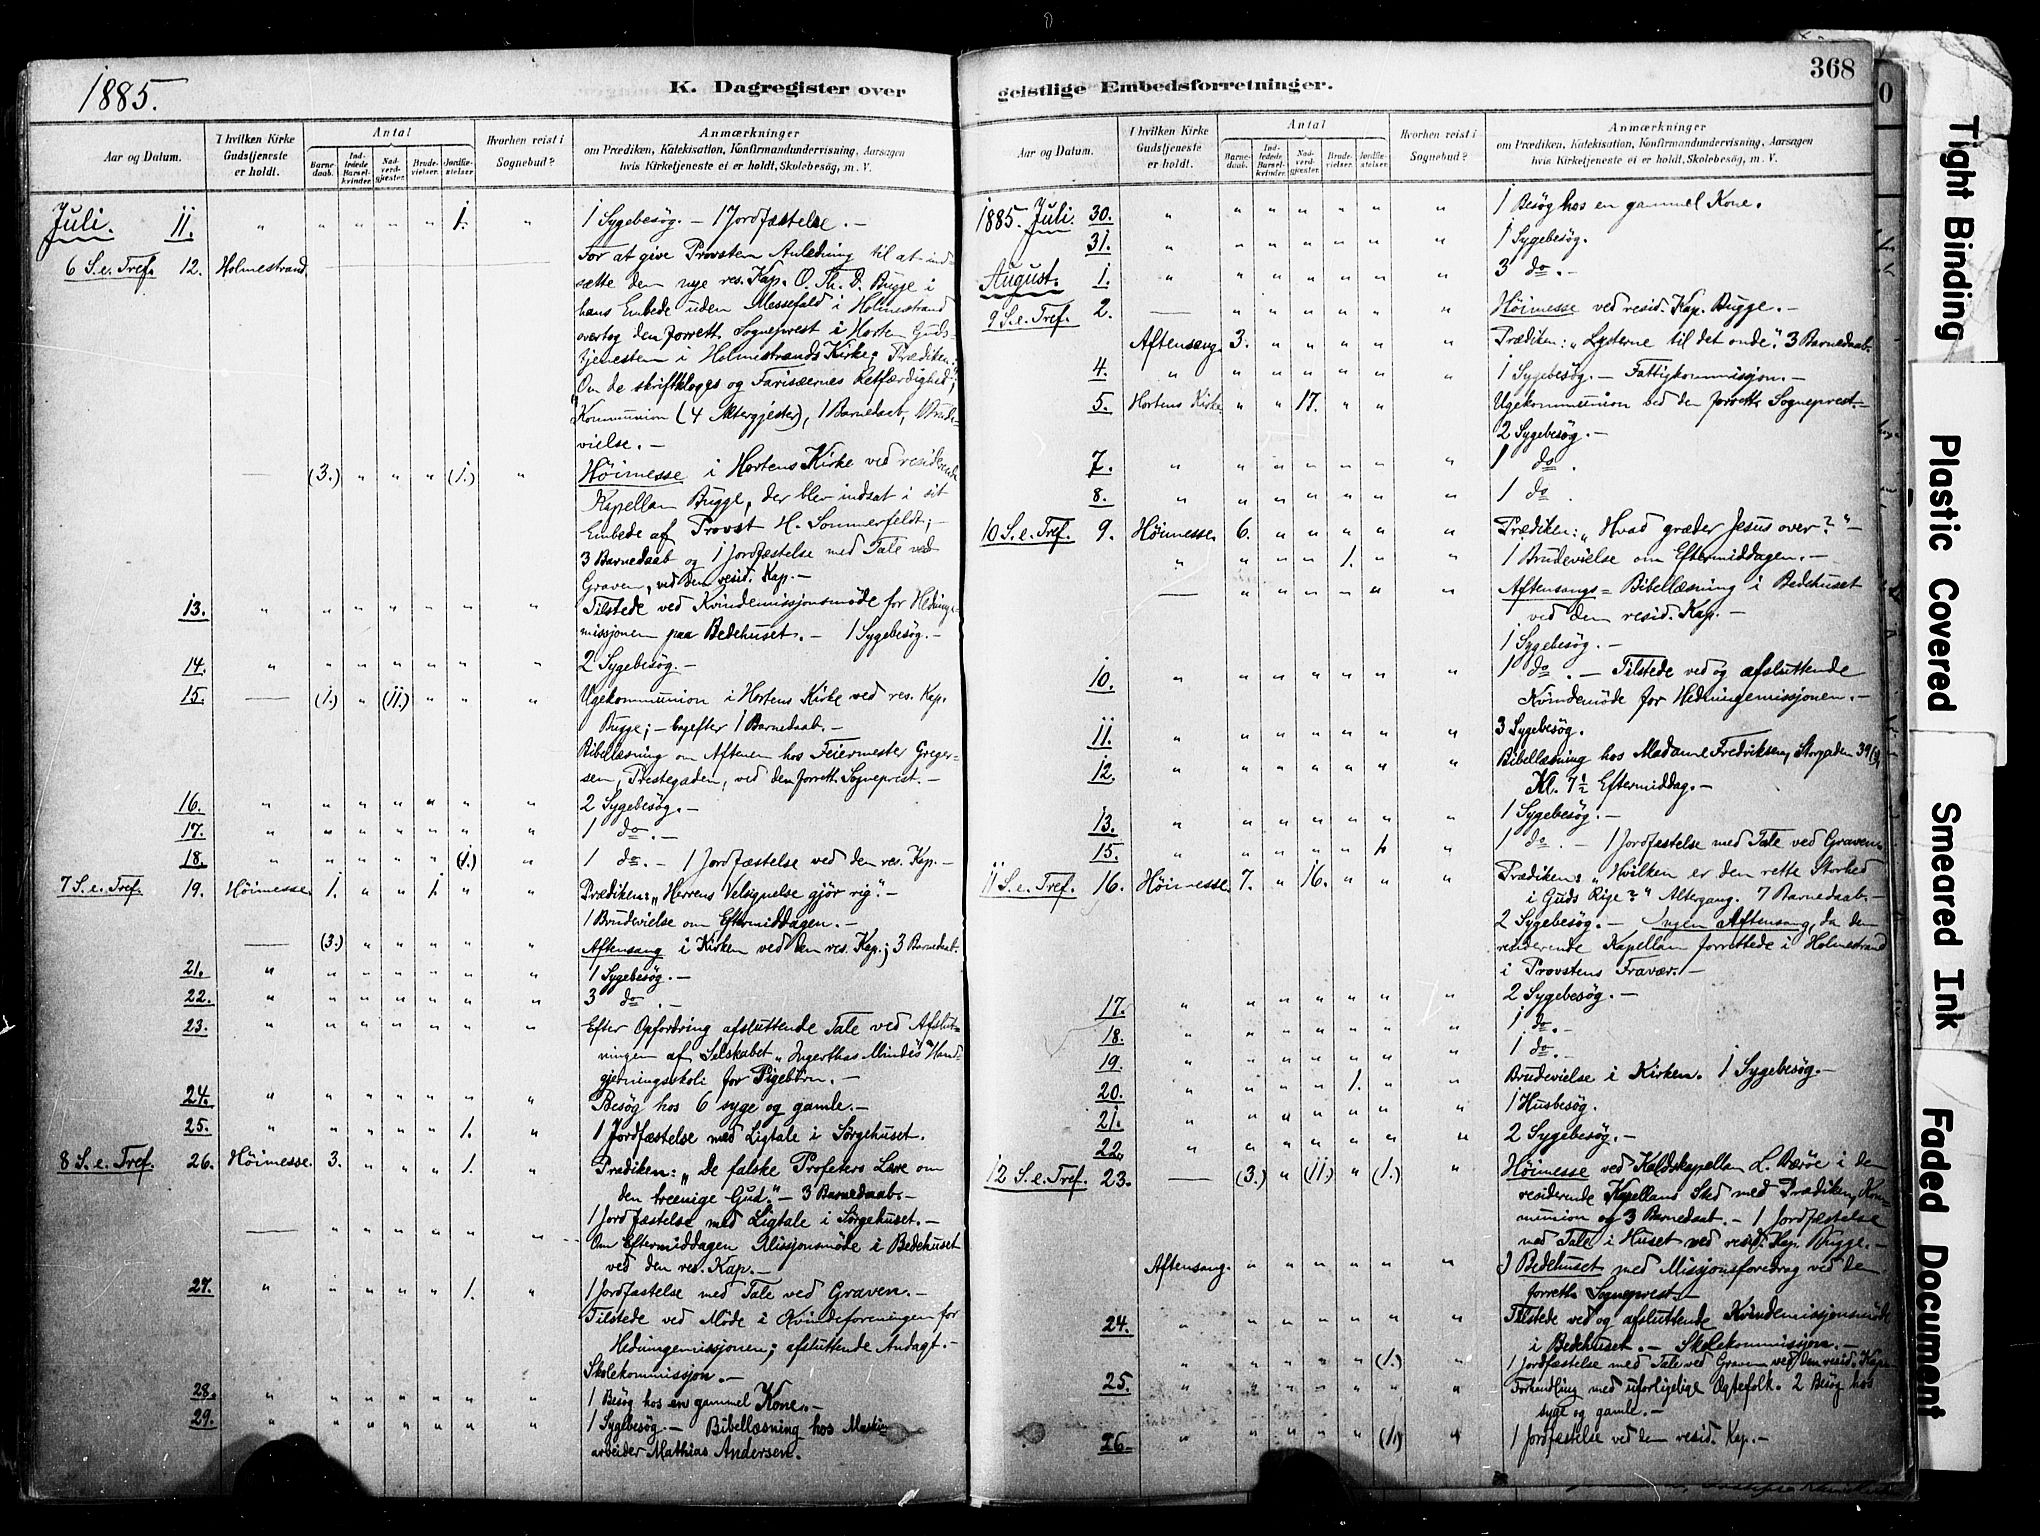 1885.
K. Dagregister over
Aar og Datum.
I hvilken Kirke Gudstjeneste er holdt.
Antal
Barne-daab.
Ind-ledede Barsel-kvinder.
Nad-verd-gjester.
Brude-vielser.
Jordfæ-stelser.
Hvorhen reist i Sognebud?
Anmærkninger
om Prædiken, Katekisation, Konfirmandundervisning, Aarsagen
hvis Kirketjeneste ei er holdt, Skolebesög, m. V.
Juli. 11. " " " " " 1. 1 Sygebesög. - 1 Jordfæstelse. -
6 S. e. Tref. 12. Holmestrand. For at give Provsten Anledning til at ind-
sætte den nye res. Kap. O. Th. D. Bugge i
hans Embede uden Messefald i Holmestrand
overtog den forrett. Sogneprest i Horten Guds-
tjenesten i Holmestrands Kirke; Prædiken:
"Om de skriftkloges og Farisæernes Retfærdighed;"
Kommunion (4 Altergjester), 1 Barnedaab, 1 Brude-
vielse. -
— (3.) " " " (1.) " Höimesse i Hortens Kirke ved residerende
Kapellan Bugge, der blev indsat i sit
Embede af Provst H. Sommerfeldt; -
3 Barnedaab og 1 Jordfæstelse med Tale ved
Graven, ved den resid. Kap. -
13. " " " " " " " Tilstede ved Kvindemissjonsmöde for Hedninge-
missjonen paa Bedehuset. - 1 Sygebesög. -
14. " " " " " " " 2 Sygebesög. -
15. — (1.) " (11.) " " " Ugekommunion i Hortens Kirke ved res. Kap.
Bugge; - bagefter 1 Barnedaab. -
Bibellæsning om Aftenen hos Feiermester Greger-
sen, Prestegaden, ved den forrett. Sogneprest. -
16. " " " " " " " 2 Sygebesög. -
17. " " " " " " " 1 do. -
18. " " " " " (1.) " 1 do. - 1 Jordfæstelse ved den res. Kap. -
7 S. e. Tref. 19. Höimesse. 1. " " 1. " " Prædiken: "Herrens Velsignelse gjör rig". -
1 Brudevielse om Eftermiddagen. -
— (3.) " " " " " Aftensang i Kirken ved den res. Kap.; 3 Barnedaab.
21. " " " " " " " 1 Sygebesög. -
22. " " " " " " " 3 do. -
23. " " " " " " " Efter Opfordring afsluttende Tale ved Afslut-
ningen af Selskabet "Ingerthas Mindes" Haand-
gjerningsskole for Pigebörn. -
24. " " " " " " " Besög hos 6 syge og gamle. -
25. " " " " " 1. " 1 Jordfæstelse med Ligtale i Sörgehuset.
8 S. e. Tref. 26. Höimesse. 3. " " " 1. " Prædiken: "De falske Profeters Lære om
den treenige Gud." - 3 Barnedaab. -
1 Jordfæstelse med Ligtale i Sörgehuset. -
— " " " " " " Om Eftermiddagen Missjonsmöde i Bedehuset
ved den res. Kap. -
27. " " " " " 1. " 1 Jordfæstelse med Tale ved Graven. -
Tilstede ved Möde i Kvindeforeningen for
Hedningemissjonen; afsluttende Andagt. -
Skolekommissjon. -
28. " " " " " " " 1 Besög hos en gammel Kone. -
29. " " " " " " " 1 Sygebesög. - Bibellæsning hos Maskin-
arbeider Mathias Andersen.
geistlige Embedsforretninger.
368
Aar og Datum.
I hvilken Kirke Gudstjeneste er holdt.
Antal
Barne-daab.
Ind-ledede Barsel-kvinder.
Nad-verd-gjester.
Brude-vielser.
Jordfæ-stelser.
Hvorhen reist i Sognebud?
Anmærkninger
om Prædiken, Katekisation, Konfirmandundervisning, Aarsagen
hvis Kirketjeneste ei er holdt, Skolebesög, m. V.
1885. Juli. 30. " " " " " " " 1 Besög hos en gammel Kone.
31. " " " " " " " 1 Sygebesög.
August. 1. " " " " " " " 3 do. -
9 S. e. Tref. 2. — " " " " " " Höimesse ved resid. Kap. Bugge. -
Aftensang 3. " " " " " Prædiken: "Lysterne til det onde". 3 Barnedaab.
4. " " " " " " " 1 Sygebesög. - Fattigkommissjon. -
5. Hortens Kirke " " 17. " " Ugekommunion ved den forrett. Sogneprest. -
2 Sygebesög. -
7. " " " " " " " 1 do.
8. " " " " " " " 1 do.
10 S. e. Tref. 9. Höimesse. 6. " " " " " Prædiken: "Hvad græder Jesus over?" -
" " " " 1. " " 1 Brudevielse om Eftermiddagen. -
— " " " " " " Aftensangs = Bibellæsning i Bedehuset
ved den resid. Kap. -
1 Sygebesög. -
10. " " " " " " " 1 do. - Tilstede ved og afsluttende
Kvindemöde for Hedningemissjonen. -
11. " " " " " " " 3 Sygebesög.
12. " " " " " " " Bibellæsning hos Madame Fredriksen, Storgaden 39
Kl. 7½ Eftermiddag. -
13. " " " " " " " 1 Sygebesög. -
15. " " " " " 1. " 1 do. - 1 Jordfæstelse med Tale ved Graven.
11 S. e. Tref. 16. Höimesse. 7. " 16. " " " Prædiken: "Hvilken er den rette Storhed
i Guds Rige?" Altergang. 7 Barnedaab. -
2 Sygebesög. - Ingen Aftensang, da den
residerende Kapellan forrettede i Holmestrand
i Provstens Fravær. -
17. " " " " " " " 2 Sygebesög. -
18. " " " " " " " 1 do. -
19. " " " " " " " 1 do. -
20. " " " " 1. " " Brudevielse i Kirken. 1 Sygebesög. -
21. " " " " " " " 1 Husbesög.
22. " " " " " " " 2 Sygebesög. -
12 S. e. Tref. 23. — (3.) " (11.) " (1.) " Höimesse ved Kaldskapellan L. Bæröe i den
residerende Kapellans Sted med Prædiken, Kom-
munion og 3 Barnedaab. - 1 Jordfæstelse
med Tale i Huset ved resid. Kap. Bugge. -
Aftensang. " " " " " " I Bedehuset med Missjonsforedrag ved den
forrett. Sogneprest. -
24. " " " " " " " Tilstede ved og afsluttende Kvindemissjonsmöde
i Bedehuset. - Skolekommissjon. -
" " " " " (1.) " 1 Jordfæstelse med Tale ved Graven ved den resid. Kap. -
25. " " " " " " " Forhandling med uforligelige Ægtefolk. 2 Besög hos
syge og gamle. -
26. " " " " " (1.) " 1 Jordfæstelse ved den resid. Kap. -
Tight Binding
Plastic Covered
Smeared Ink
Faded Document